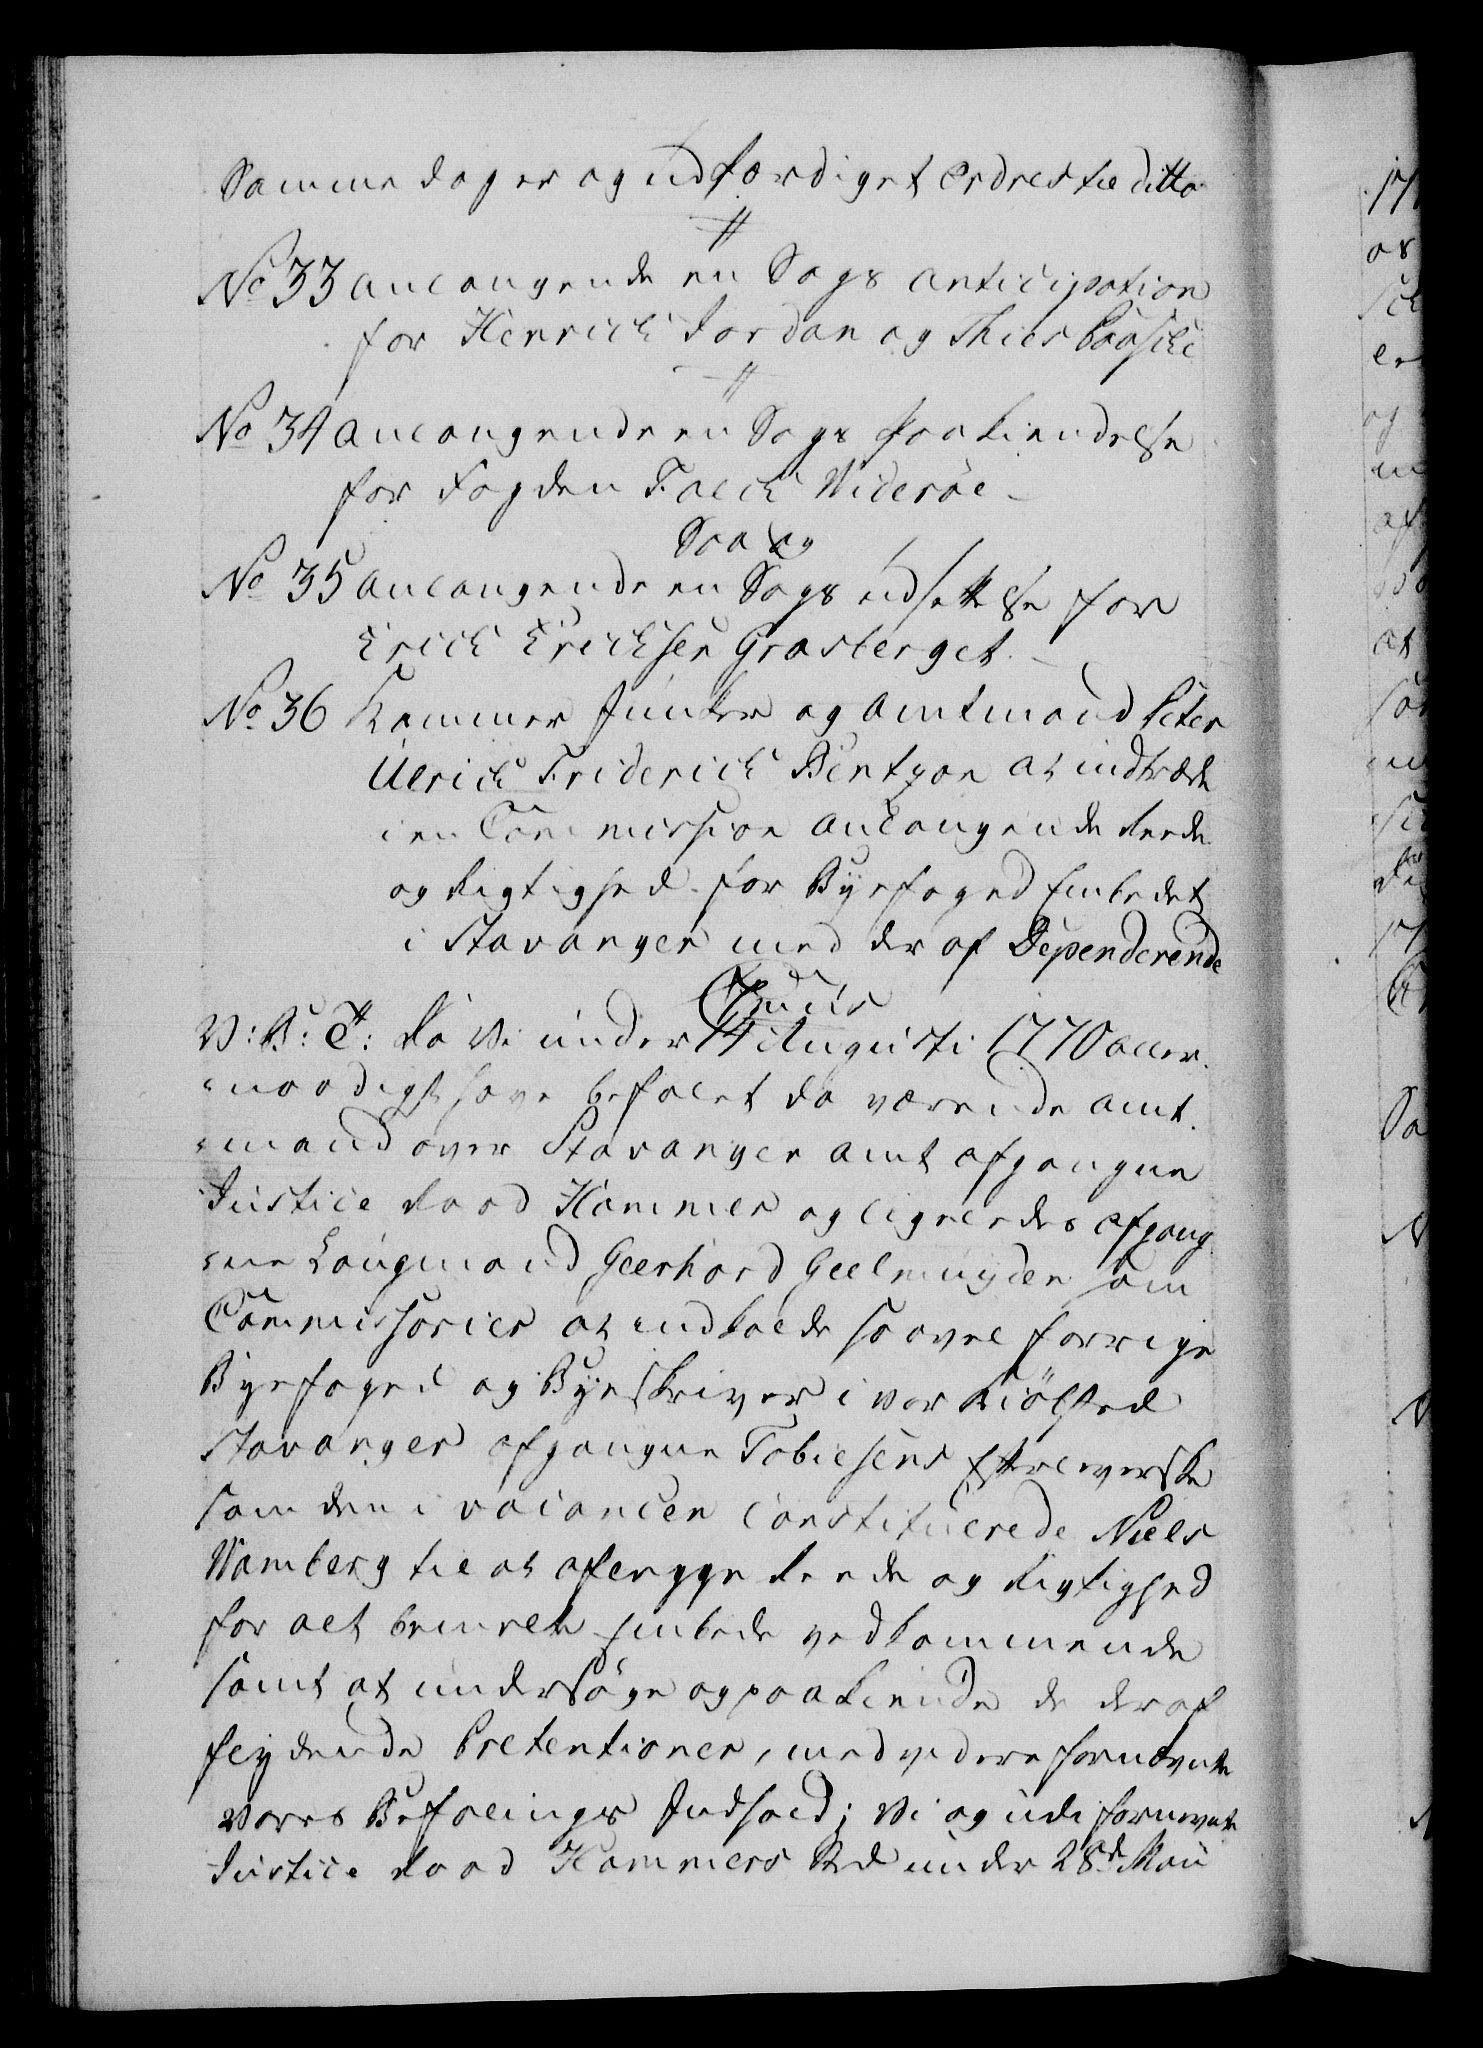 Samme dag er og udfærdiget Ordres til ditto
//
No 33 anlangende en Sags anticipation
for Henrich Jordan og Thies
//
No 34 anlangende en Sags Paakiendelse
for Fogden Falch Widerøe
Saa og
No 35 anlangende en Sags udsettelse for
Erich Erichsen Grasberget.
No 36 Kammer Junker og Amtmand Peter
Ulrich Friderich Bentzon at indtræde
i en Commission anlangende Reede
og Rigtighed for Byefoged Embedet
i Stavanger med der af Dependerende
V: B: T: Da Vi under 14 Augusti 1770 aller-
naadigst have befalet da værende Amt-
mand over Stavanger Amt afgangne
Justice Raad Hammer og ligeledes afgang-
ne Laugmand Geerhard Geelmuyden som
Commissarier at indkalde saavel forrige
Byefoged og Byeskriver i vor Kiöbsted
Stavanger afgangne Tobiesens Efterleverske
som den i vacancen Constituerede Niels
Wamberg til at aflegge Reede og Rigtighed
for alt bemelte Embede vedkommende
samt at undersöge og paakiende de deraf
flydende Pretentioner, med videre fornævnte
vores Befalings Indhold; Vi og udi fornevnte
Justice Raad Hammers Sted under 28d Maii